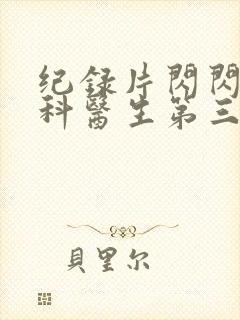 纪録片閃閃
科醫生第三
貝里尔